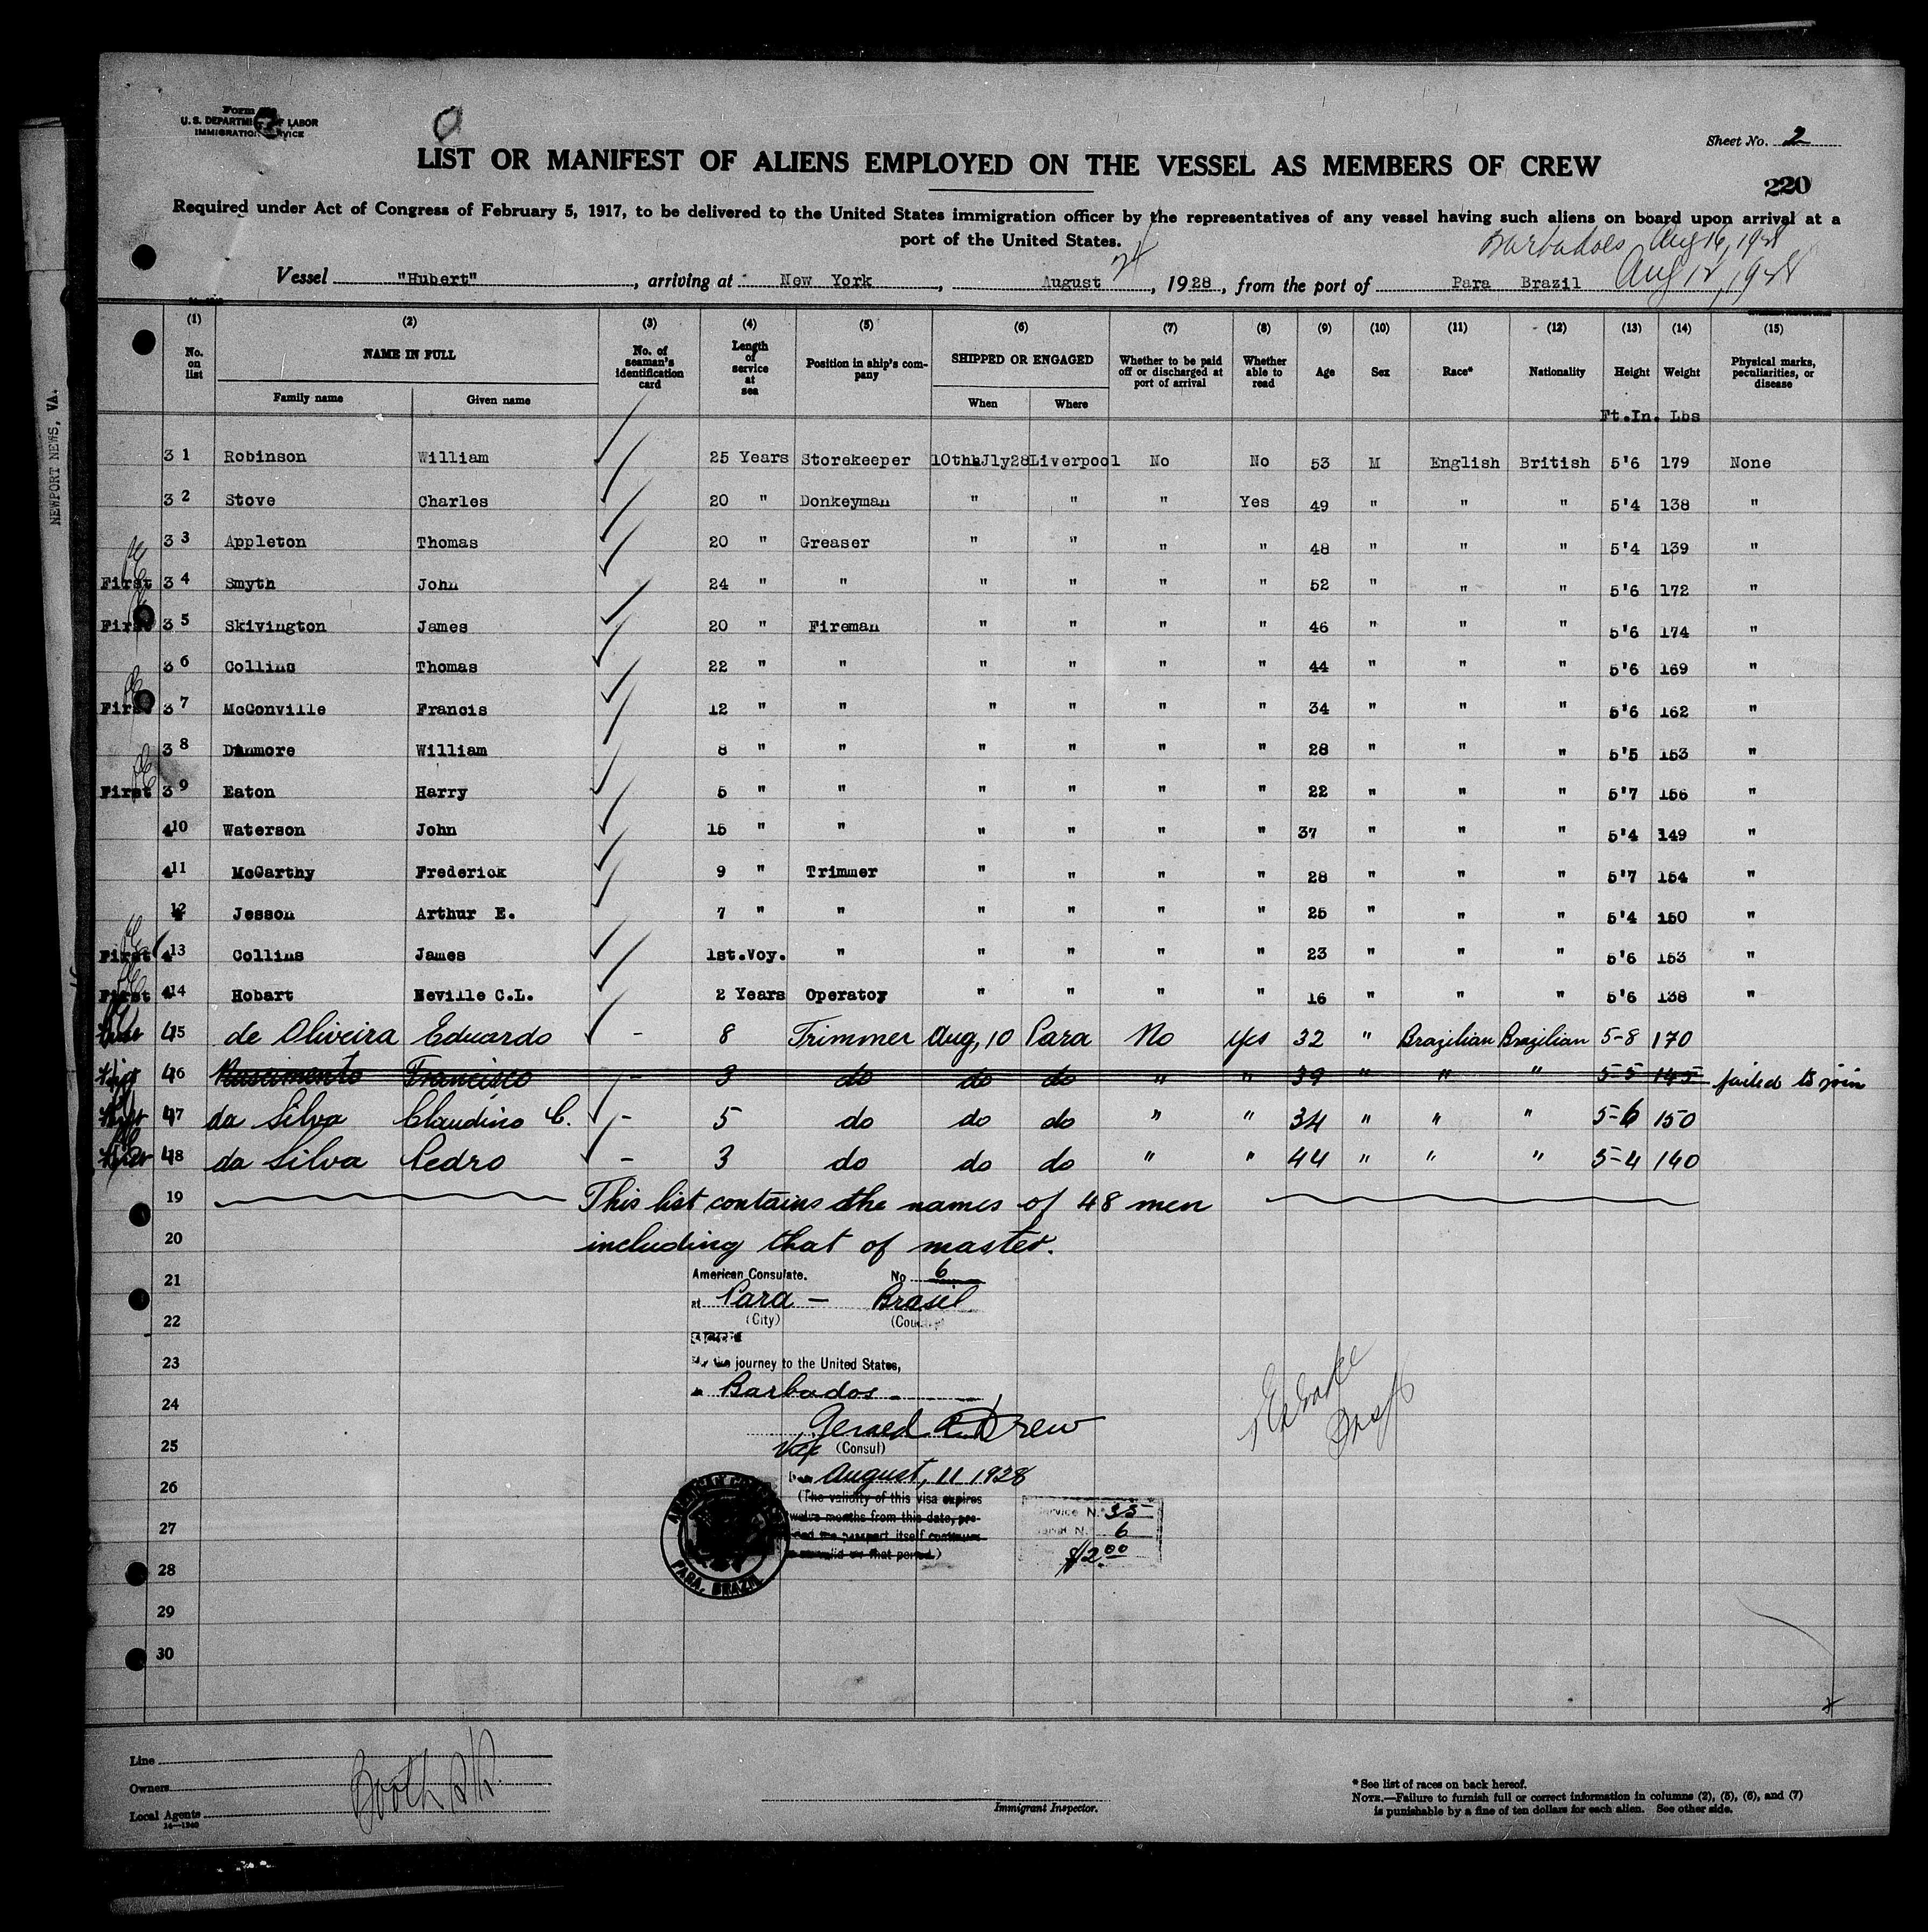 Form
U. S. DEPARTMENT OF LABOR
IMMIGRATION SERVICE
Sheet No. 2
LIST OR MANIFEST OF ALIENS EMPLOYED ON THE VESSEL AS MEMBERS OF CREW
220
Required under Act of Congress of February 5, 1917, to be delivered to the United States immigration officer by the representatives of any vessel having such aliens on board upon arrival at a
port of the United States.
Barbadoes Aug 16, 1928
Vessel "Hubert", arriving at New York, August, 1928, from the port of Para Brazil Aug 12, 1928
(1) (2) (3) (4) (5) (6) (7) (8) (9) (10) (11) (12) (13) (14) (15)
No. on list NAME IN FULL No. of seaman's identification card Length of service at sea Position in ship's company SHIPPED OR ENGAGED Whether to be paid off or discharged at port of arrival Whether able to read Age Sex Race* Nationality Height Weight Physical marks, peculiarities, or disease
Family name Given name When Where
Ft.In. Lbs
31 Robinson William 25 Years Storekeeper 10th Jly28 Liverpool No No 53 M English British 5'6 179 None
32 Stove Charles 20 " Donkeyman " " " Yes 49 " " " 5'4 138 "
33 Appleton Thomas 20 " Greaser " " " " 48 " " " 5'4 139 "
First 34 Smyth John 24 " " " " " " 52 " " " 5'6 172 "
First 35 Skivington James 20 " Fireman " " " " 46 " " " 5'6 174 "
36 Collins Thomas 22 " " " " " " 44 " " " 5'6 169 "
First 37 McConville Francis 12 " " " " " " 34 " " " 5'6 162 "
38 Dinmore William 8 " " " " " " 28 " " " 5'5 153 "
First 39 Eaton Harry 5 " " " " " " 22 " " " 5'7 156 "
410 Waterson John 15 " " " " " " 37 " " " 5'4 149 "
411 McCarthy Frederick 9 " Trimmer " " " " 28 " " " 5'7 154 "
412 Jesson Arthur E. 7 " " " " " " 25 " " " 5'4 150 "
First 413 Collins James 1st.Voy. " " " " " 23 " " " 5'6 153 "
First 414 Hobart Neville C.L. 2 Years Operator " " " " 16 " " " 5'6 138 "
45 de Oliveira Eduardo - 8 Trimmer Aug, 10 Para No Yes 32 " Brazilian Brazilian 5-8 170
46 Nascimento Francisco - 3 do do do " " 39 " " " 5-5 145 failed to join
47 da Silva Claudino C. - 5 do do do " " 34 " " " 5-6 150
48 da Silva Pedro - 3 do do do " " 44 " " " 5-4 140
19 This list contains the names of 48 men
20 including that of master.
21 American Consulate. No 6
at Para - Brasil
22 (City)
23 journey to the United States,
Barbados -
24
Gerald A. Drew
25 Vice (Consul)
August, 11 1928
26 (The validity of this visa expires
27 twelve months from this date, pro-
vided the passport itself continues
valid for that period.)
Service No. 35
6
$2.00
AMERICAN CONSULATE PARA, BRAZIL
28
29
30
Line
Owners
Local Agents
14—1240
Booth
Immigrant Inspector.
* See list of races on back hereof.
NOTE.—Failure to furnish full or correct information in columns (2), (5), (6), and (7)
is punishable by a fine of ten dollars for each alien. See other side.
NEWPORT NEWS, VA.